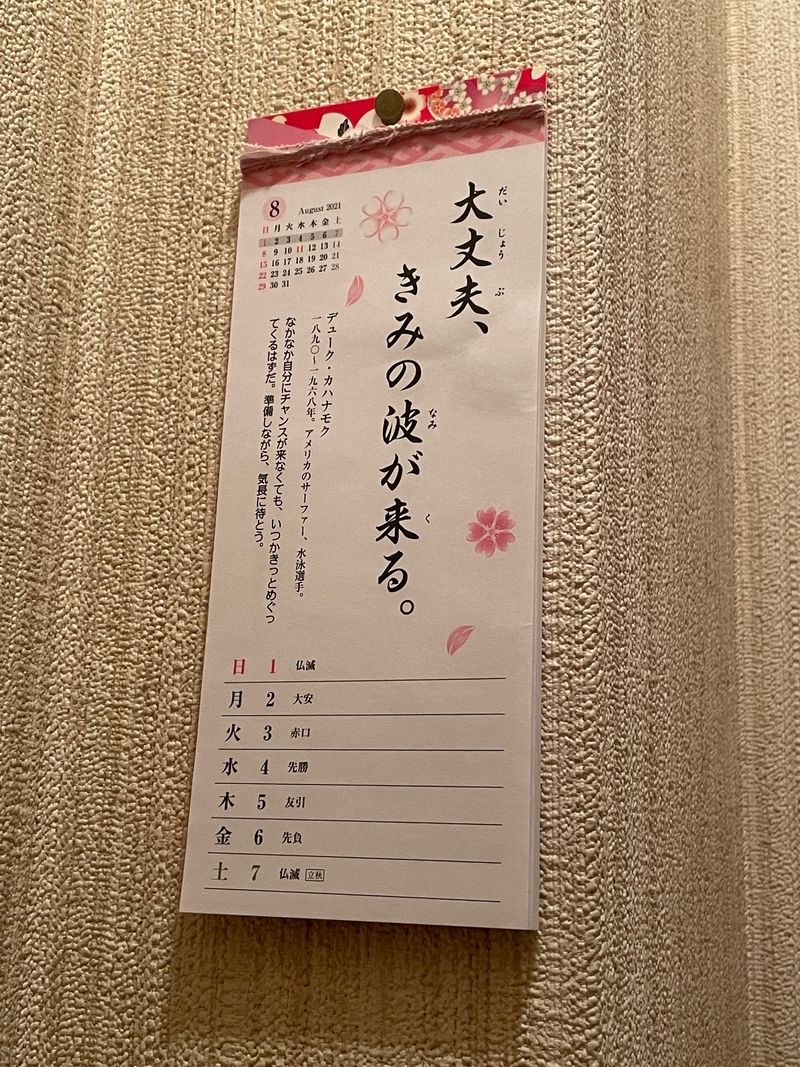 8 August 2021
日 月 火 水 木 金 土
1 2 3 4 5 6 7
8 9 10 11 12 13 14
15 16 17 18 19 20 21
22 23 24 25 26 27 28
29 30 31
だい じょう ぶ
大丈夫、
なみ く
きみの波が来る。
デューク・カハナモク
一八九〇〜一九六八年。アメリカのサーファー、水泳選手。
なかなか自分にチャンスが来なくても、いつかきっとめぐっ
てくるはずだ。準備しながら、気長に待とう。
日 1 仏滅
月 2 大安
火 3 赤口
水 4 先勝
木 5 友引
金 6 先負
土 7 仏滅 立秋